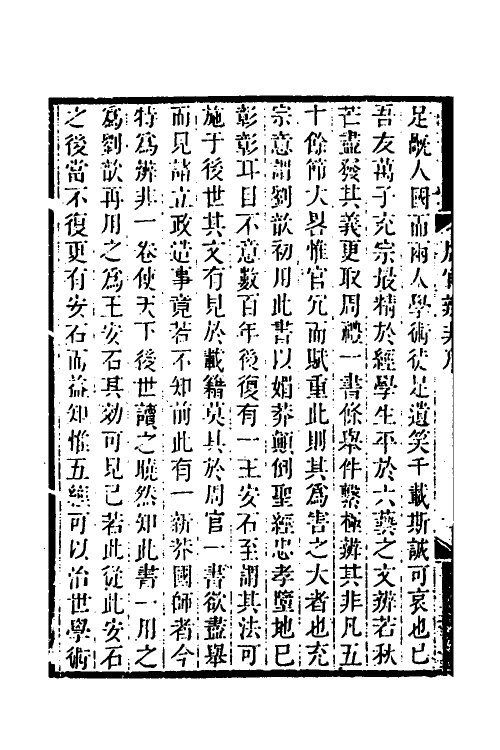 周官辨非序
足覘人國而兩人學術徒足遺笑千載斯誠可哀也已
吾友萬子充宗最精於經學生平於六藝之文辨若秋
芒盡發其義更取周禮一書條舉件繫極辨其非凡五
十餘節大畧惟官冗而賦重此則其為害之大者也充
宗意謂劉歆初用此書以媚莽顛倒聖經忠孝墮地已
彰彰耳目不意數百年後復有一王安石至謂其法可
施于後世其文有見於載籍莫具於周官一書欲盡舉
而見諸立政造事竟若不知前此有一新莽國師者今
特為辨非一卷使天下後世讀之曉然知此書一用之
為劉歆再用之為王安石其効可見已若此從此安石
之後當不復更有安石而益知惟五經可以治世學術